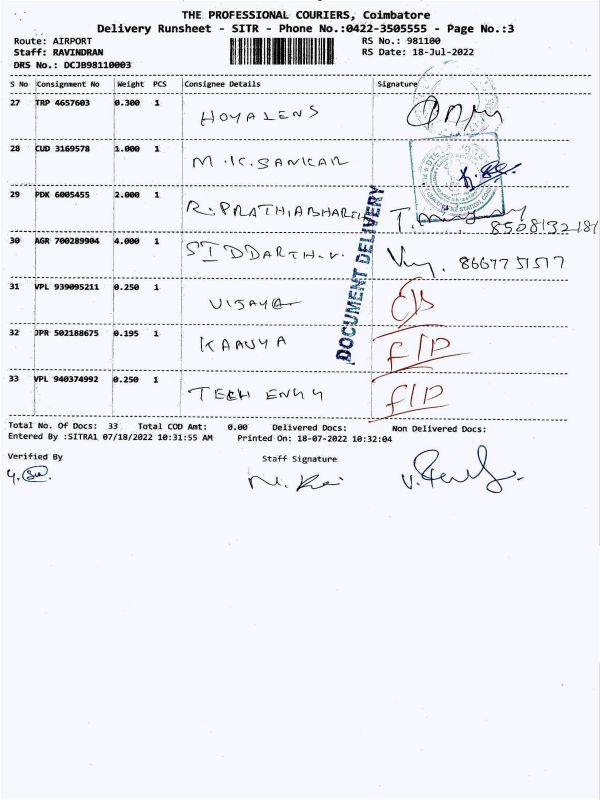 THE PROFESSIONAL COURIERS, Coimbatore
Delivery Runsheet - SITR - Phone No.:0422-3505555 - Page No.:3
Route: AIRPORT RS No.: 981100
Staff: RAVINDRAN RS Date: 18-Jul-2022
DRS No.: DCJB98110003
S No Consignment No Weight PCS Consignee Details Signature
27 TRP 4657603 0.300 1 HOYALENS
28 CUD 3169578 1.000 1 M.K.SANKAR
29 PDK 6005455 2.000 1 R.PRATHIABHARATH
8508132181
30 AGR 700289904 4.000 1 SIDDARTH.V. 8667751517
31 VPL 939095211 0.250 1 VIJAYA
32 JPR 502188675 0.195 1 KAAVYA F/P
33 VPL 940374992 0.250 1 TECH ENGG F/P
DOCUMENT DELIVERY
Total No. Of Docs: 33 Total COD Amt: 0.00 Delivered Docs: Non Delivered Docs:
Entered By :SITRA1 07/18/2022 10:31:55 AM Printed On: 18-07-2022 10:32:04
Verified By Staff Signature